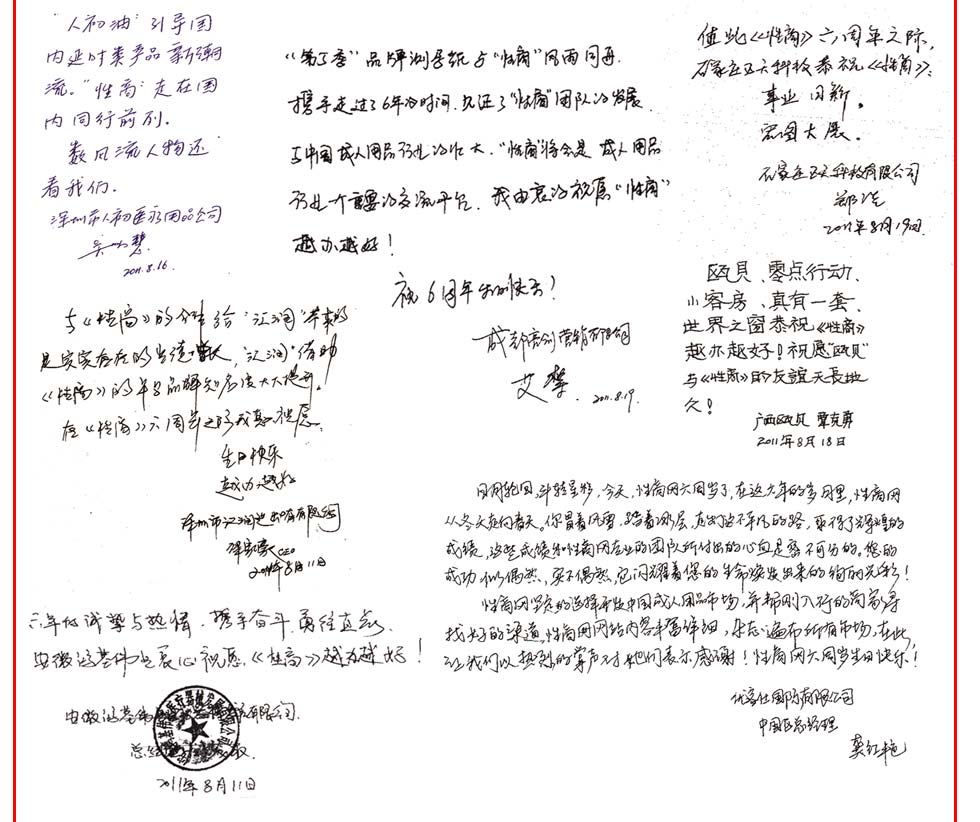 "人初油"引导国
内延时类产品新潮
流。"性商"走在国
内同行前列。
数风流人物还
看我们。
深圳市人初医疗用品公司
2011.8.16.
《第五季》品牌测导纸与"性商"风雨同舟.
携手走过了6年的时间.见证了"性商"团队的发展.
与中国成人用品行业的壮大."性商"将会是成人用品
行业一个重要的交流平台.我由衷的祝愿"性商"
越办越好!
祝6周年生日快乐!
成都亮剑营销有限公司
艾
2011.8.19.
值此《性商》六周年之际,
石家庄五天科技恭祝《性商》:
事业日新。
宏图大展。
石家庄五天科技有限公司
郑
2011年8月19日
瓯贝、零点行动、
小客房、真有一套、
世界之窗恭祝《性商》
越办越好!祝愿"瓯贝"
与《性商》的友谊天長地
久!
广西瓯贝 覃克勇
2011年8月18日
与《性商》的合作给"汇润"带来的
是实实在在的业绩增长,"汇润"借助
《性商》的平台品牌知名度大大提升。
在《性商》六周年之际我真心祝愿:
生日快乐
越办越好
深圳市汇润进出口有限公司
CEO
2011年8月11日
日月轮回,斗转星移,今天,性商网六周岁了,在这六年的岁月里,性商网
从冬天走向春天。你冒着风雪,踏着冰层,走出了不平凡的路,取得了辉煌的
成绩,这些成绩和性商网专业的团队所付出的心血是密不可分的,您的
成功似偶然,实不偶然,它闪耀着您的生命焕发出来的绚丽光彩!
性商网坚定的选择开发中国成人用品市场,并帮刚入行的商家寻
找好的渠道,性商网网站内容丰富详细,杂志遍布所有市场,在此,
让我们以热烈的掌声对她们表示感谢!性商网六周岁生日快乐!
优客仕国际有限公司
中国区总经理
龚红艳
六年的诚挚与热情,携手奋斗,勇往直前,
安徽鸿基伟业衷心祝愿,《性商》越办越好!
安徽鸿基伟业有限公司
总经理
2011年8月11日